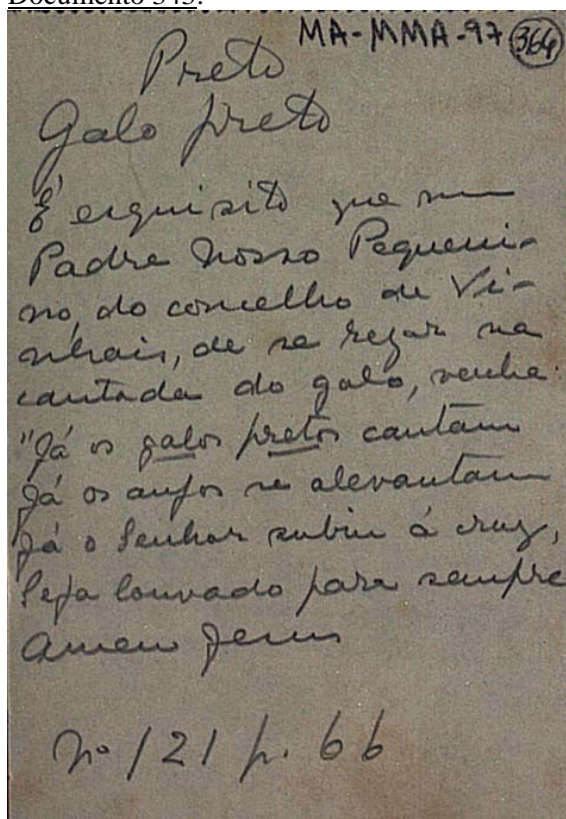 Documento 343:
MA-MMA-97 364
Preto
Galo preto
É esquisito que num
Padre Nosso Pequeni-
no, do concelho de Vi-
nhais, de se rezar na
cantada do galo, venha:
"Já os galos pretos cantam
Já os anjos se alevantam
Já o Senhor subiu á cruz,
Seja louvado para sempre
Amen Jesus
nº 121 p. 66